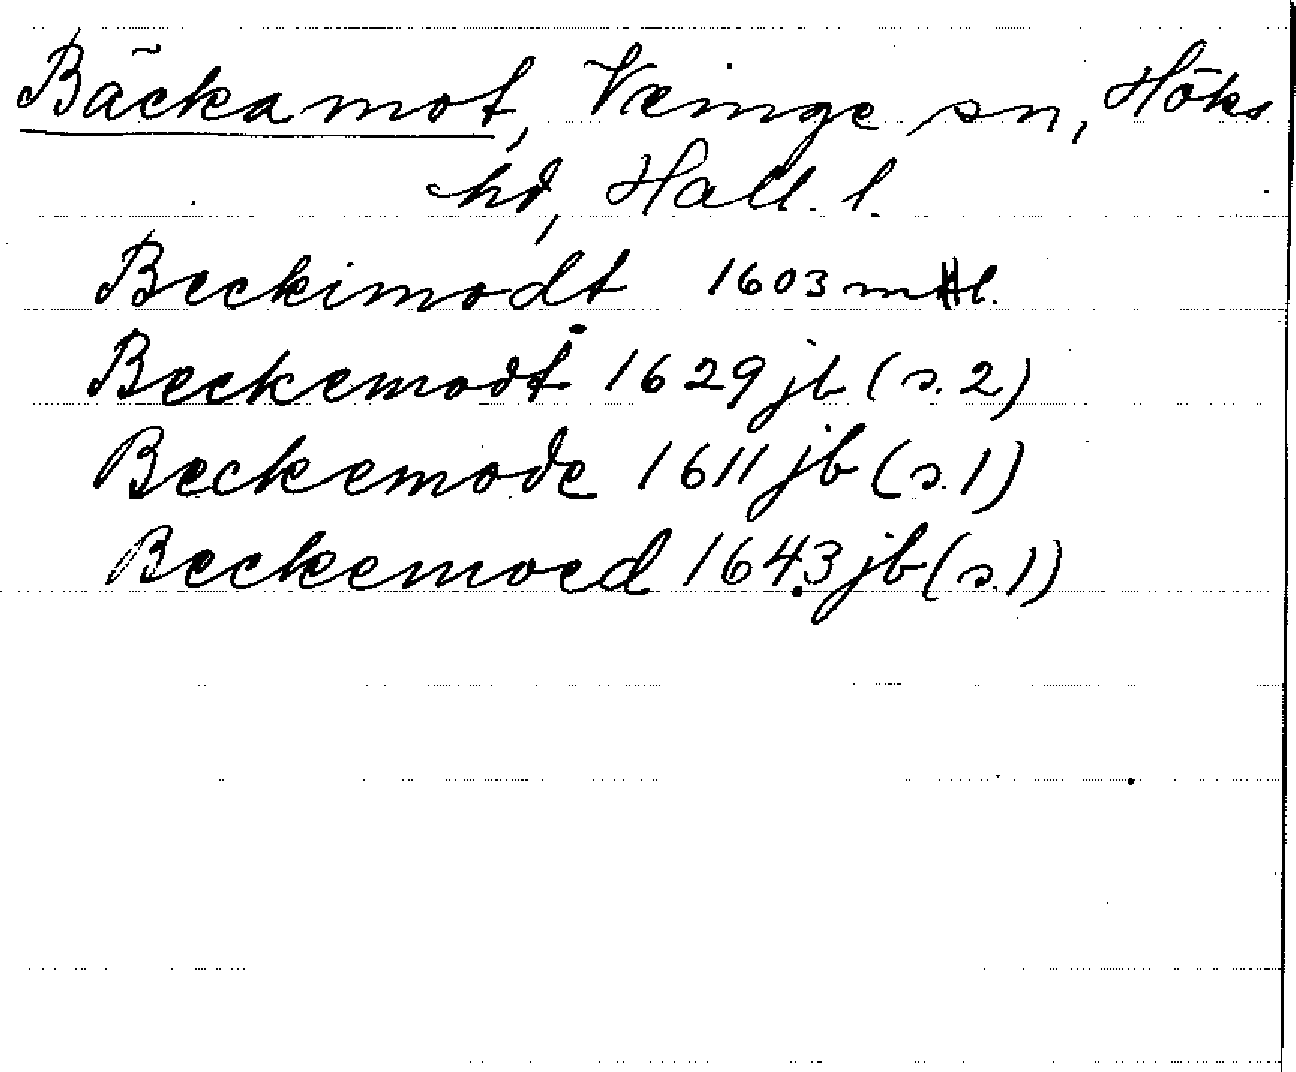 Bäckamot, Veinge sn, Höks
hd, Hall. l.
Beckimodt 1603 mtl.
Beckemodt 1629 jb (s. 2)
Beckemode 1611 jb (s. 1)
Beckemoed 1643 jb (s. 1)